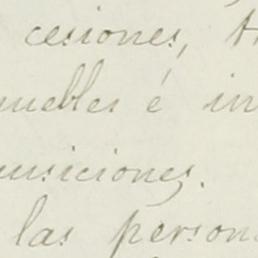 cesiones,
muebles é in
uisiciones.
las person